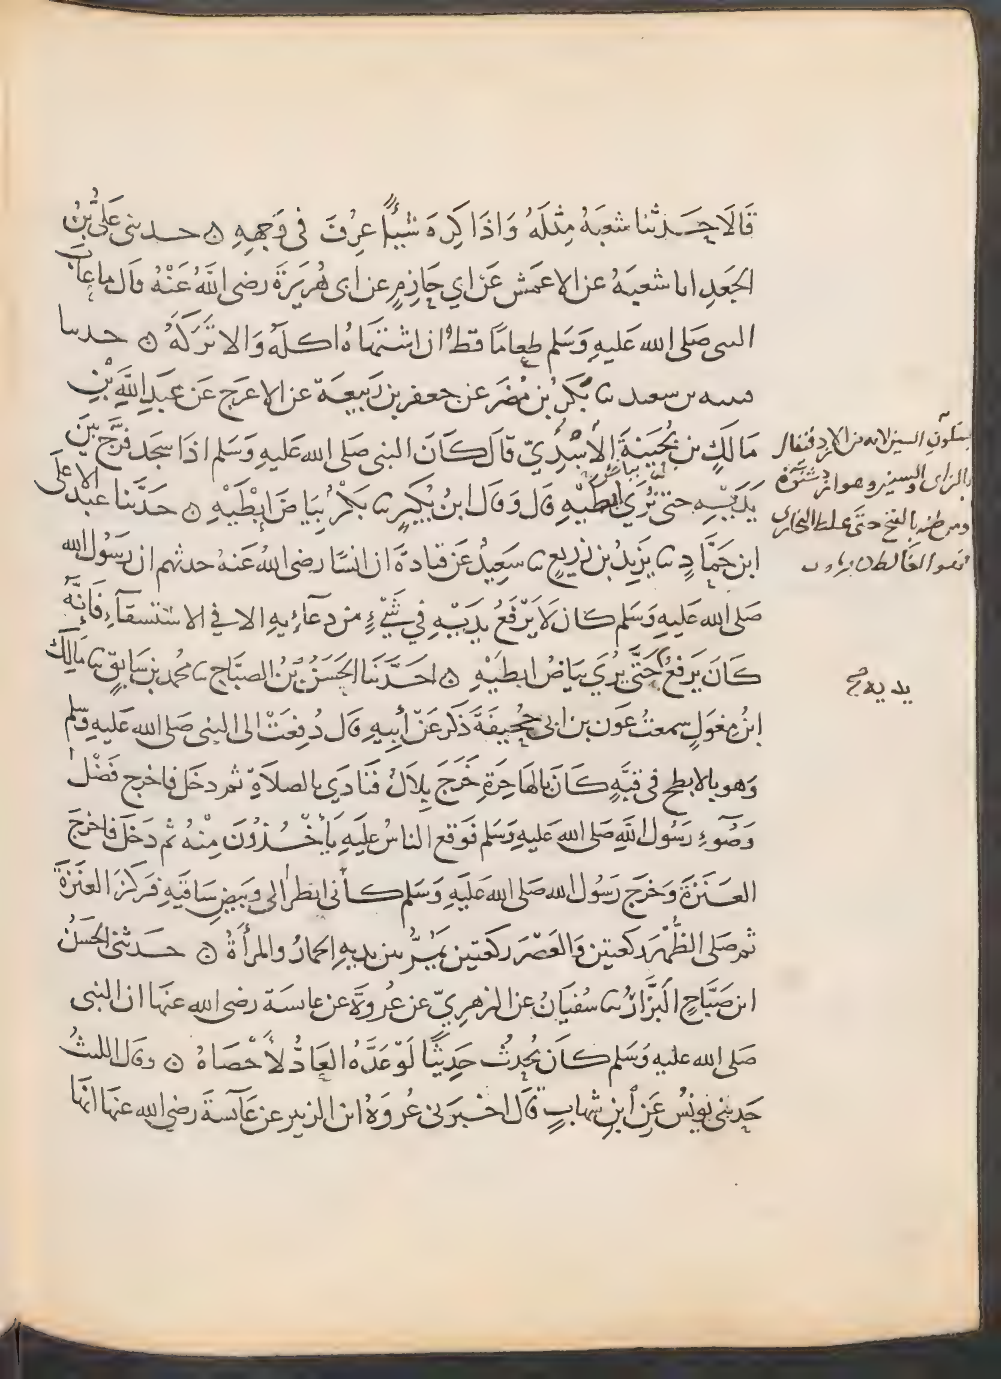 قَالَا حَدَّثَنَا شعبَةُ مِثْلَهُ وَاذَا كَرِهَ شَيْئًا عُرِفَ فى وَجهِهِ ۞ حدثنى عَلىُّ بْنُ
الجَعدِ انا شعبَةُ عن الاعمَش عَن ابي حَازِمٍ عن ابى هُرَيرَةَ رضى اللَّهُ عَنْهُ قال ما عابَ
النبى صَلى الله عَليهِ وَسَلم طعامًا قط ان اشتهَاهُ اكلهُ وَالا تَرَكَهُ ۞ حدثنا
قتيبه بن سعيد نا بَكْرُ بْن مُضَر عن جعفر بن رَبيعَة عن الاعرَج عَن عَبدِ اللَّهِ بْنِ
مَالكٍ بن بُحَينَةَ الأَسْدِيّ قَالَ كَانَ النبى صَلى الله عَليهِ وَسَلم اذا سجَد فَرَّج بينَ
يَدَيْهِ حتى نُرَي ابطَيْهِ قال وَقال ابنُ بُكَيرٍ نا بَكْرٌ بَيَاضَ ابْطَيْهِ ۞ حَدَّثنا عبد الاعلَى
ابن حَمَّادٍ نا يَزيدُ بن زُرَيعٍ نا سَعِيدٌ عَن قتادةَ ان انسًا رضى اللهُ عَنهُ حدثهم ان رَسُول الله
صَلى الله عَليهِ وَسَلم كان لَا يَرْفَعُ يدَيْهِ في شَيْءٍ من دعآءِيهِ الا في الاسْتسقَآءِ فَانَّهُ
كَانَ يَرفعُ حَتَّى يُرَي بَيَاضُ ابطَيْهِ ۞ حَدَّثنَا الحَسَنُ بْنُ الصبَّاح نا محمد بن سَابقٍ نا مَالِكُ
ابْنُ مِغوَلٍ سمعتُ عَون بن ابى جُحَيفَةَ ذَكَرَ عَنْ أبيهِ قال دُفِعْتُ الى النبى صَلى الله عَليهِ وَسلم
وَهو بالابطح فى قبَّةٍ كَانَ بالهَاجرَةِ خَرَجَ بِلَالٌ فنَادَي بالصلاةِ ثم دخَل فاخرج فَضْلَ
وَضُوءِ رَسُول اللهِ صَلى الله عَليهِ وَسَلم فوَقع الناسُ عليَهِ يَأْخُذُونَ مِنْهُ ثم دَخَلَ فاخرَجَ
العَنَزَةَ وَخرَج رَسُول الله صَلى الله عَليهِ وَسَلم كأنى انظرُ الى وَبيصِ سَاقيهِ فرَكَزَ العنَزَةَ
ثم صَلى الظُّهْرَ ركعتين وَالعَصْرَ ركعَتين يَمُرُّ بين يديهِ الحمارُ والمرأةُ ۞ حدثنى الحَسَنُ
ابن صَبَّاحٍ البَزَّارُ نا سُفيَانُ عن الزهريّ عن عُروَةَ عن عايشة رضى الله عنهَا ان النبى
صَلى الله عليه وَسَلم كانَ يُحدِثُ حَدِيثًا لَوْ عَدَّهُ العَادُّ لَأَحْصَاهُ ۞ وقال الليثُ
حَدثنى يُونسُ عَنِ ابنِ شهابٍ قالَ اخبرَنى عُروَةُ ابن الزبير عن عَايشةَ رضى الله عنهَا انهَا
بسكون السين لانه من الازد فتقال
بالزاى والسين وهو ازد شنؤة
ومن ظنه بالفتح حتى غلط البخارى
فهو الغالط
يديه صح